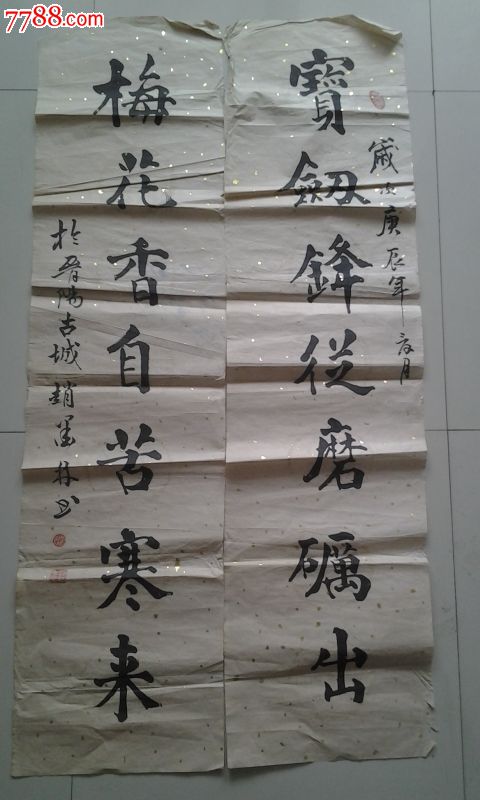 7788.com
歲次庚辰年月
寶劔鋒從磨礪出
梅花香自苦寒来
於晋陽古城趙墨林书